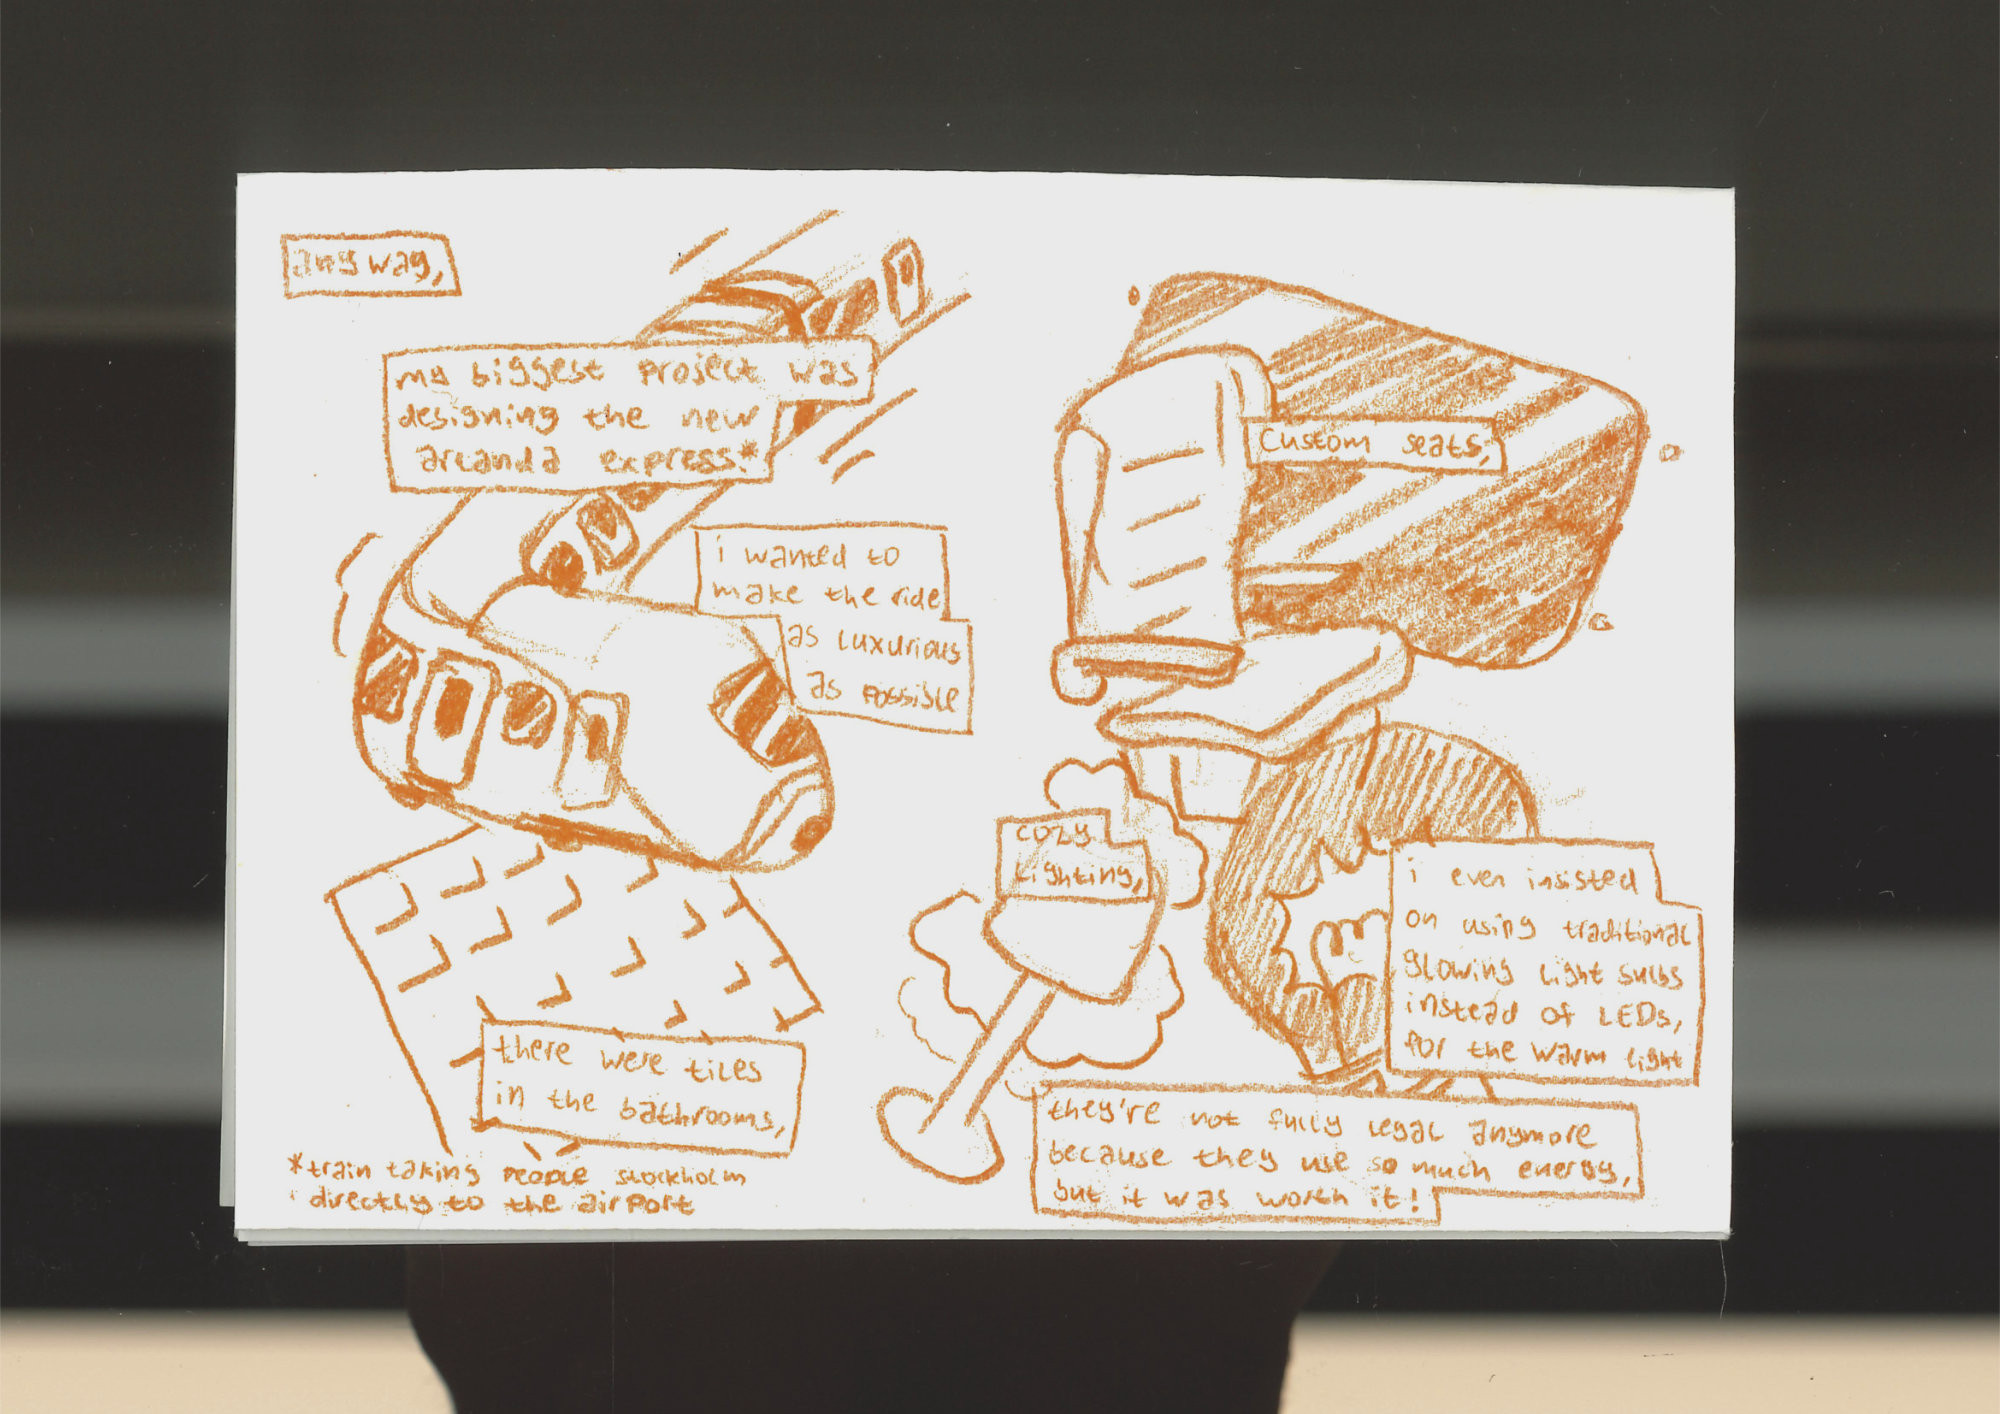 anyway,
my biggest project was
designing the new
arlanda express*
i wanted to
make the ride
as luxurious
as possible
there were tiles
in the bathrooms,
*train taking people stockholm
directly to the airport
custom seats,
cozy
lighting,
i even insisted
on using traditional
glowing light bulbs
instead of LEDs,
for the warm light
they're not fully legal anymore
because they use so much energy,
but it was worth it!